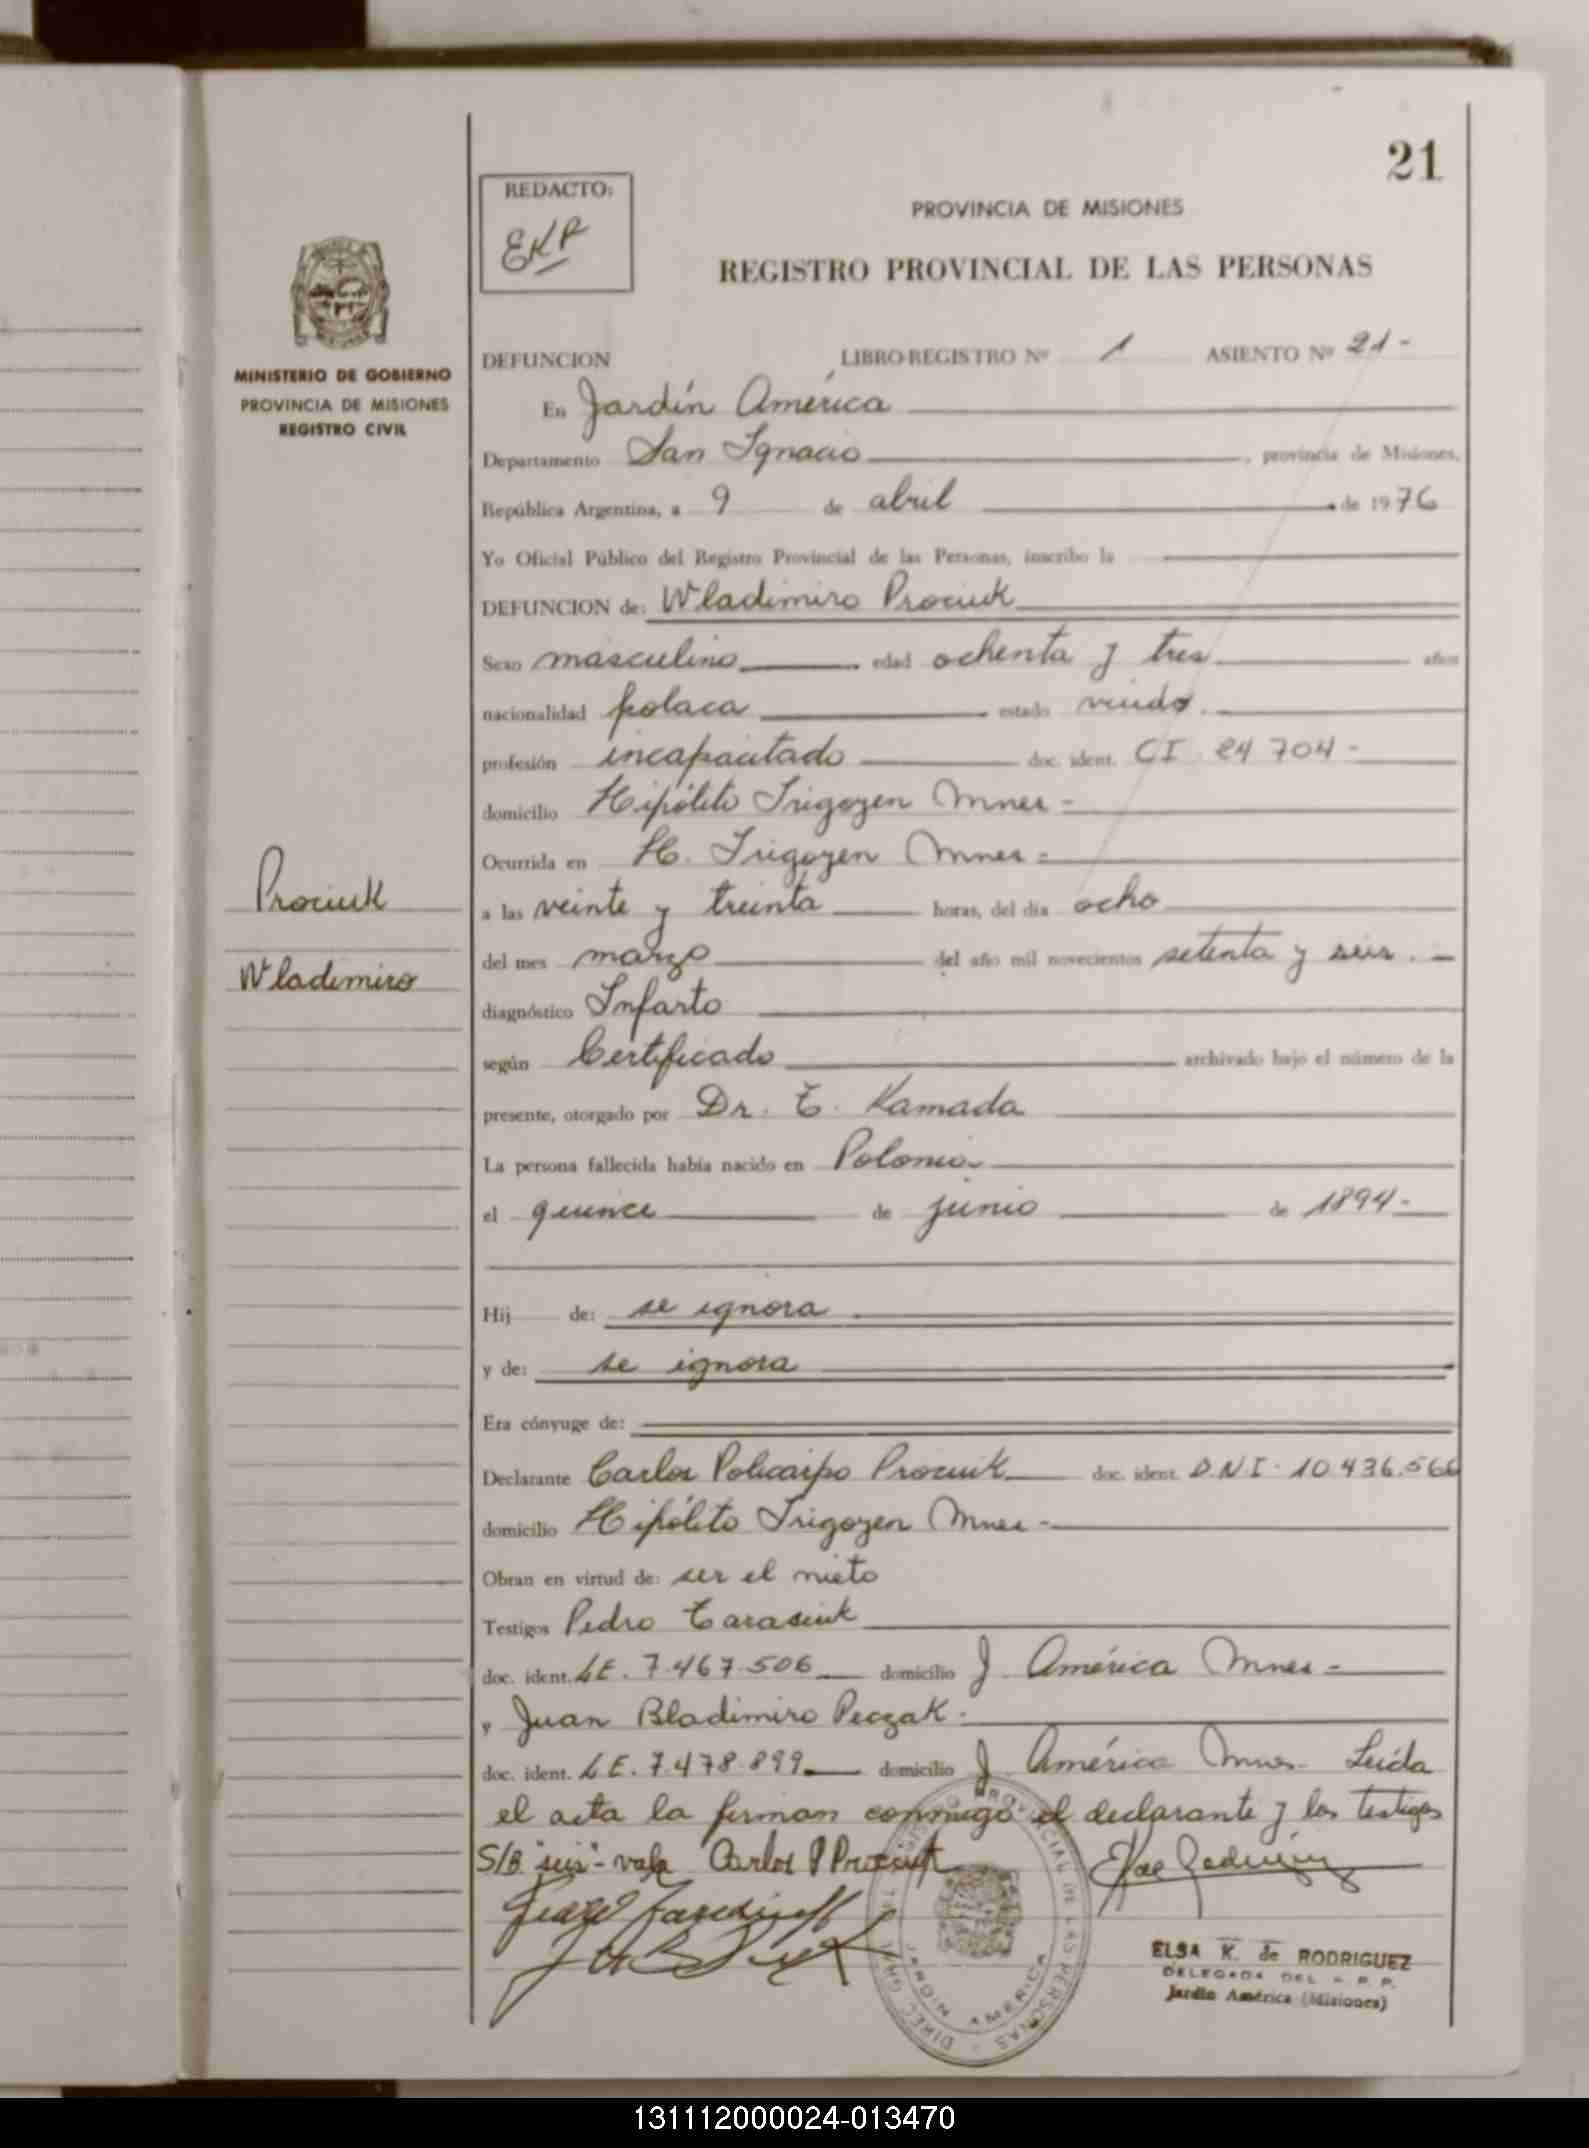 21
REDACTO:
EKR
PROVINCIA DE MISIONES
REGISTRO PROVINCIAL DE LAS PERSONAS
MINISTERIO DE GOBIERNO
PROVINCIA DE MISIONES
REGISTRO CIVIL
DEFUNCION LIBRO-REGISTRO Nº 1 ASIENTO Nº 21-
En Jardín América
Departamento San Ignacio, provincia de Misiones,
República Argentina, a 9 de abril de 1976
Yo Oficial Público del Registro Provincial de las Personas, inscribo la
DEFUNCION de: Wladimiro Prociuk
Sexo masculino edad ochenta y tres años
nacionalidad polaca estado viudo.
profesión incapacitado doc. ident. CI 24 704-
domicilio Hipólito Irigoyen Mnes-
Ocurrida en H. Irigoyen Mnes-
a las veinte y treinta horas, del día ocho
del mes marzo del año mil novecientos setenta y seis.-
diagnóstico Infarto
según Certificado archivado bajo el número de la
presente, otorgado por Dr. T. Kamada
La persona fallecida había nacido en Polonia
el quince de junio de 1894-
Hij de: se ignora
y de: se ignora
Era cónyuge de:
Declarante Carlos Policarpo Prociuk doc. ident. D.N.I. 10.436.566
domicilio Hipólito Irigoyen Mnes-
Obran en virtud de: ser el nieto
Testigos Pedro Tarasiuk
doc. ident. LE. 7.467.506 domicilio J. América Mnes-
y Juan Bladimiro Peczak.
doc. ident. LE. 7.478.899 domicilio J América Mnes- Leída
el acta la firman conmigo el declarante y los testigos
S/B "seis"-vale Carlos P Prociuk
Prociuk
Wladimiro
DIREC GRAL REGISTRO PROVINCIAL DE LAS PERSONAS
JARDIN AMERICA
ELSA K. de RODRIGUEZ
DELEGADA DEL R. P. P.
Jardín América (Misiones)
131112000024-013470